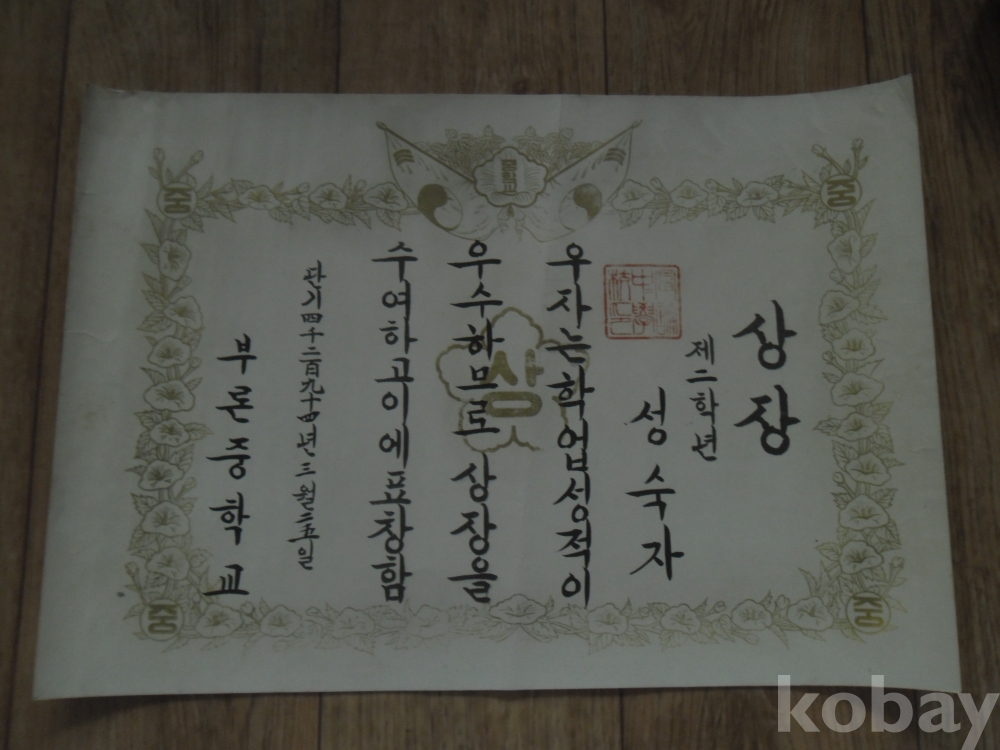 상장
제二학년
성숙자
우자는학업성적이
우수하므로상장을
수여하고이에표창함
단기四千二百九十四년三월二五일
부론중학교
상
중
중
중
중
kobay